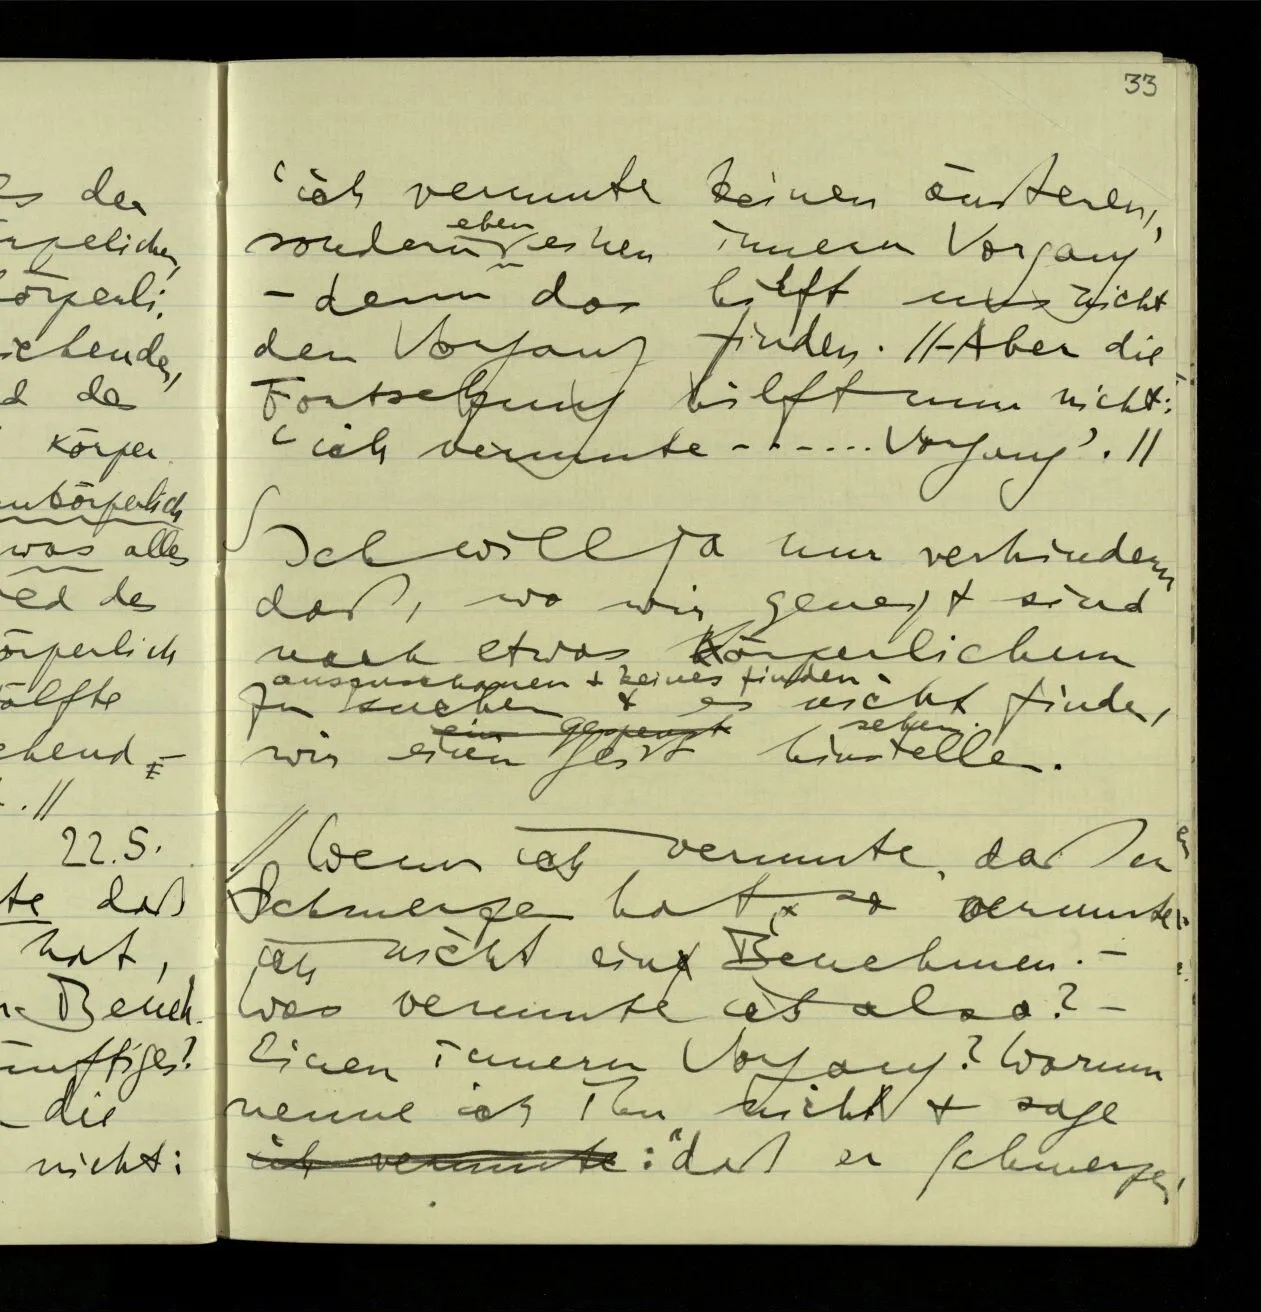 33
es der
körperlichen,
körperli,
d des
körper
unkörperlich
was alles
ed des
körperlich
hälfte
ehend
. //
22.5.
te daß
hat,
Beneh-
künftiges?
– die
nicht:
'ich vermute keinen äusseren,
eben
sondern einen innern Vorgang'
– denn das hilft uns nicht
den Vorgang finden. // – Aber die
Fortsetzung hilft nun nicht:
'ich vermute - - - - ... Vorgang'. //
Ich will ja nur verhindern
daß, wo wir geneigt sind
nach etwas Körperlichem
auszuschauen & keines finden
zu suchen & es nicht finden,
ein Gespenst sehen.
wir einen Geist hinstellen.
// Wenn ich vermute, daß er
Schmerzen hat, so vermute
ich nicht ein Benehmen. –
Was vermute ich also? –
Einen innern Vorgang? Warum
nenne ich ihn nicht & sage
ich vermute: "daß er Schmerzen